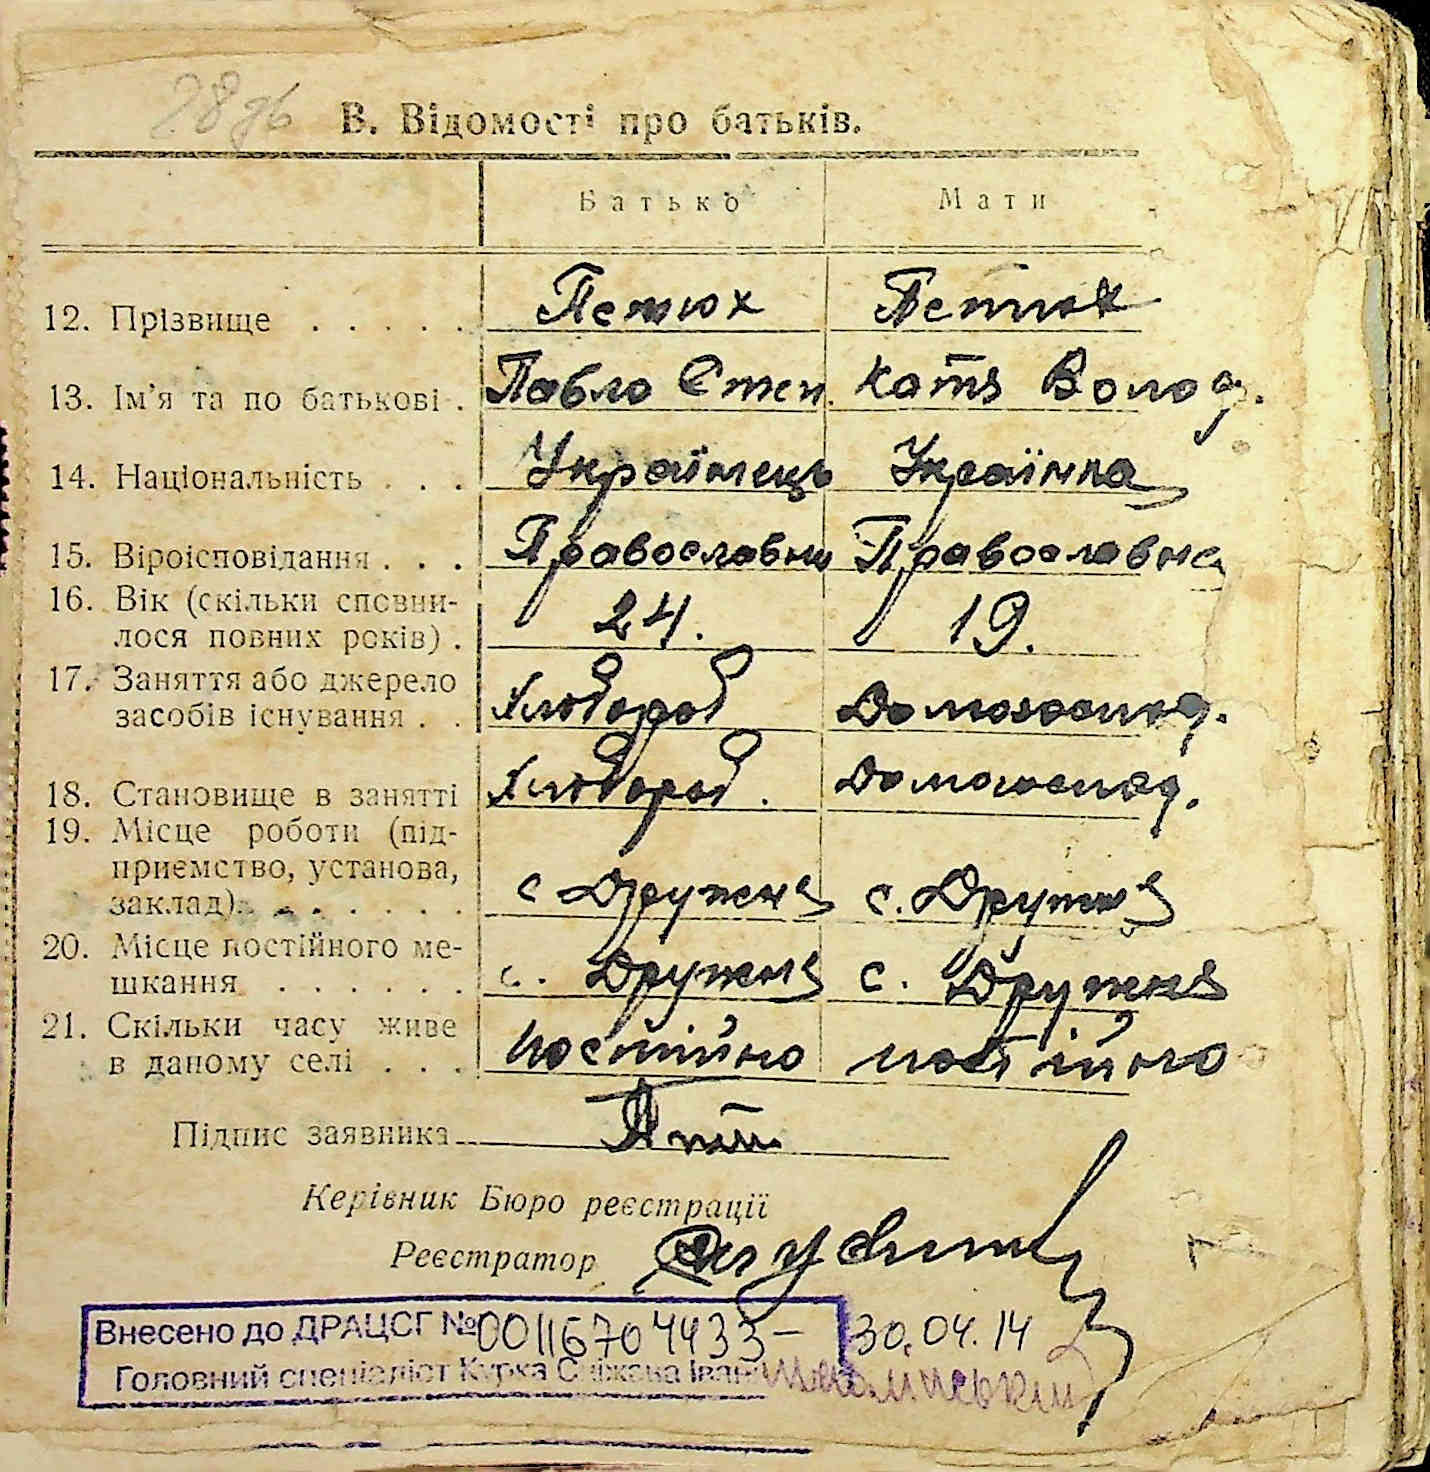 В. Відомості про батьків.
Батько Мати
12. Прізвище . . . . . Петюх Петюх
13. Ім'я та по батькові . Павло Степ. Катя Волод.
14. Національність . . . Українець Українка
15. Віроісповідання . . . Православни Православна
16. Вік (скільки сповни-
лося повних років) . 24. 19.
17. Заняття або джерело
засобів існування . . Хлібороб Домогоспод.
18. Становище в занятті Хлібороб. Домогоспод.
19. Місце роботи (під-
приємство, установа,
заклад) . . . . . . . с Дружня с. Дружня
20. Місце постійного ме-
шкання . . . . . . с. Дружня с. Дружня
21. Скільки часу живе
в даному селі . . . постійно постійно
Підпис заявника
Керівник Бюро реєстрації
Реєстратор
Внесено до ДРАЦСГ № 00116704433 – 30.04.14
Головний спеціаліст Курка Сніжана